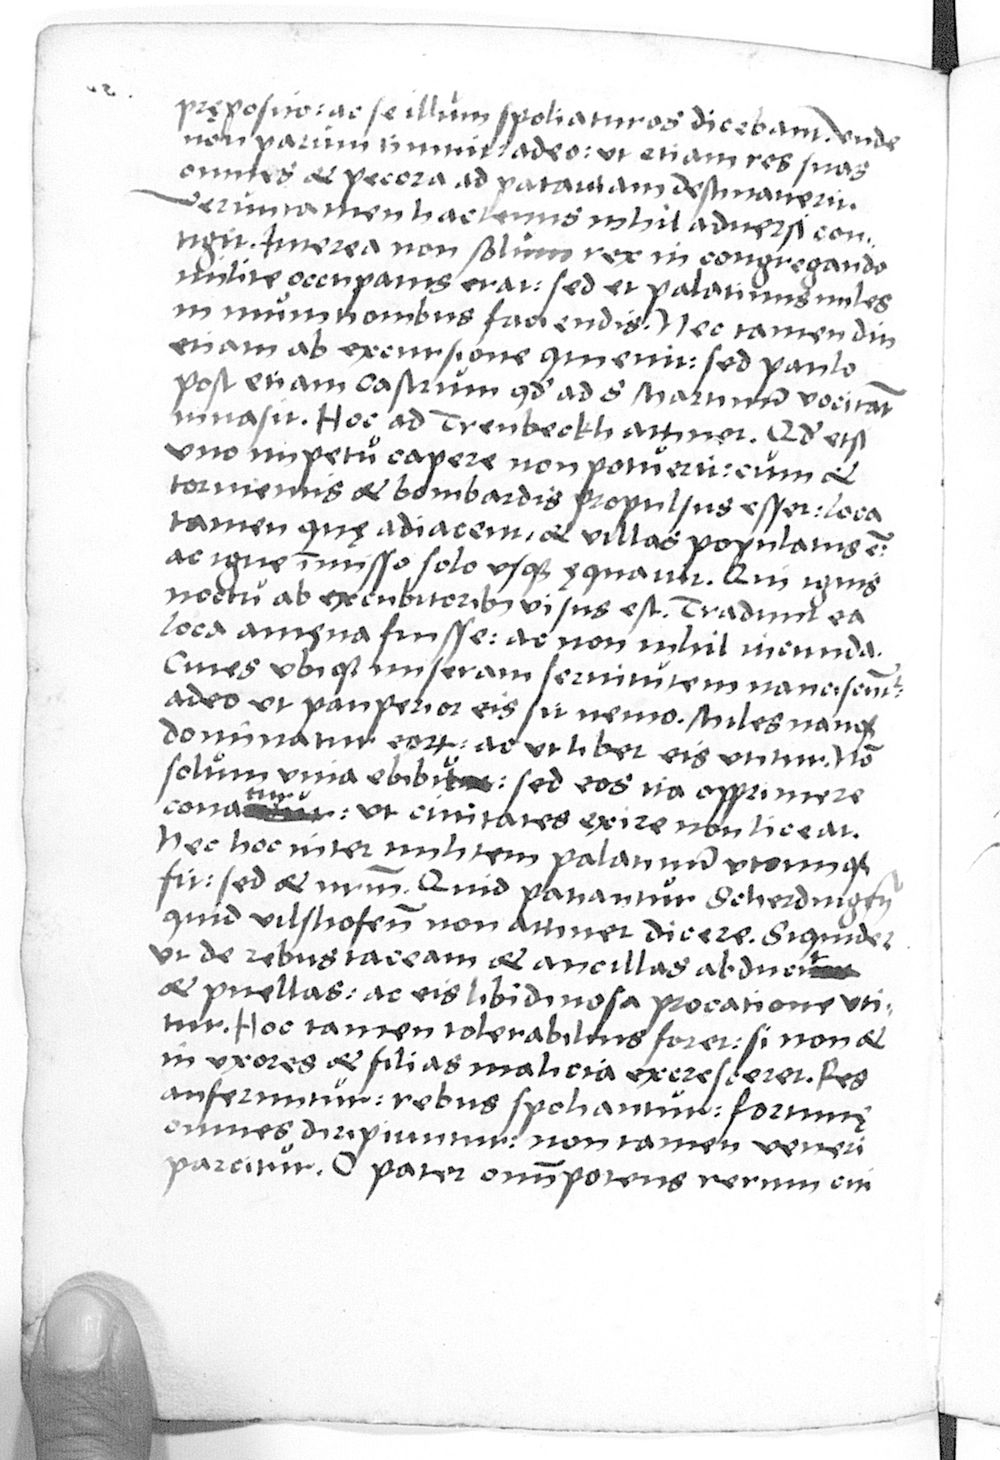 pręposito: ac se illum spoliaturos dicebant. Unde
non parum timuit: adeo: ut etiam res suas
omnes & pecora ad pataviam destinaverit.
Veruntamen hactenus nihil adversi con-
tigit. Interea non solum rex in congregando
milite occupatus erat: sed et palatinus miles
in munitionibus faciendis. Nec tamen diu
etiam ab excursione quievit: sed paulo
post etiam Castrum qđ ad S Martinū vocitāt
invasit. Hoc ad Trenbeckh attinet. Qđ etsi
uno impetu capere non potuerit: cum &
tormentis & bombardis propulsus esset: loca
tamen quę adiacent, & villas populatus ē:
ac igne īmisso solo usq ęquavit. Qui ignis
noctu ab excubitorib visus est. Tradunt ea
loca amęna fuisse: ac non nihil iucunda.
Cives ubiq miseram servitutem nanciscūt:
adeo ut pauperior eis sit nemo. Miles namq
dominatur eorꝝ: ac ut libet eis utitur. Nō
solum vina ebibit: sed eos ita opprimere
conatur: ut civitates exire non liceat.
Nec hoc inter militem palatinū utrumq
fit: sed & nrm̄. Quid patiantur Scherdingeñ
quid vilshofeñ non attinet dicere. Siquidem
ut de rebus taceam & ancillas abducit
& puellas: ac eis libidinosa procatione uti-
tur. Hoc tamen tolerabilius foret: si non &
in uxores & filias malicia excresceret. Res
auferuntur: rebus spoliantur: fortunę
omnes diripiuntur: non tamen veneri
parcitur. O pater omīpotens rerum cui